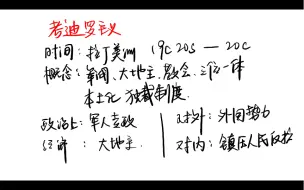 考迪罗主义
时间：拉丁美洲 19C 20S — 20C
概念：军阀、大地主、教会 三位一体
本土化 独裁制度.
政治上：军人专政
经济：大地主.
对外：外国势力
对内：镇压人民反抗